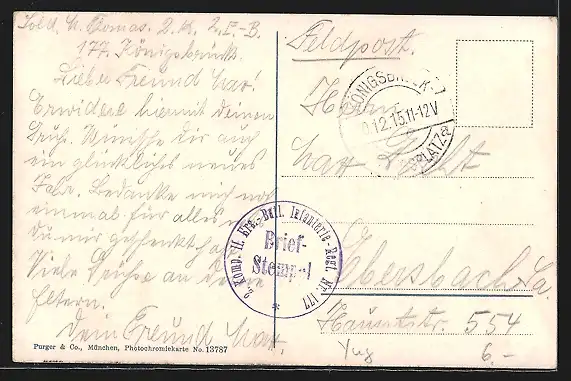 Sold. K. Thomas. 2. K. 2. E.-B.
177. Königsbrück.
Lieber Freund Max!
Erwidere hiermit deinen
Gruß. Wünsche Dir auch
ein glückliches neues
Jahr. Bedanke mich noch
einmal für alles was
du mir geschenkt hast.
Viele Grüße an deine
Eltern.
Dein Freund Max.
Purger & Co., München, Photochromiekarte No. 13787
Feldpost.
KÖNIGSBRÜCK
12.15.11-12V
PLATZ a
Herrn
Max
Ebersbach i. Sa.
Hauptstr. 554
2. Komp. II. Ers.-Batl. Infanterie-Regt. Nr. 177
Brief-
Stempel
6.-